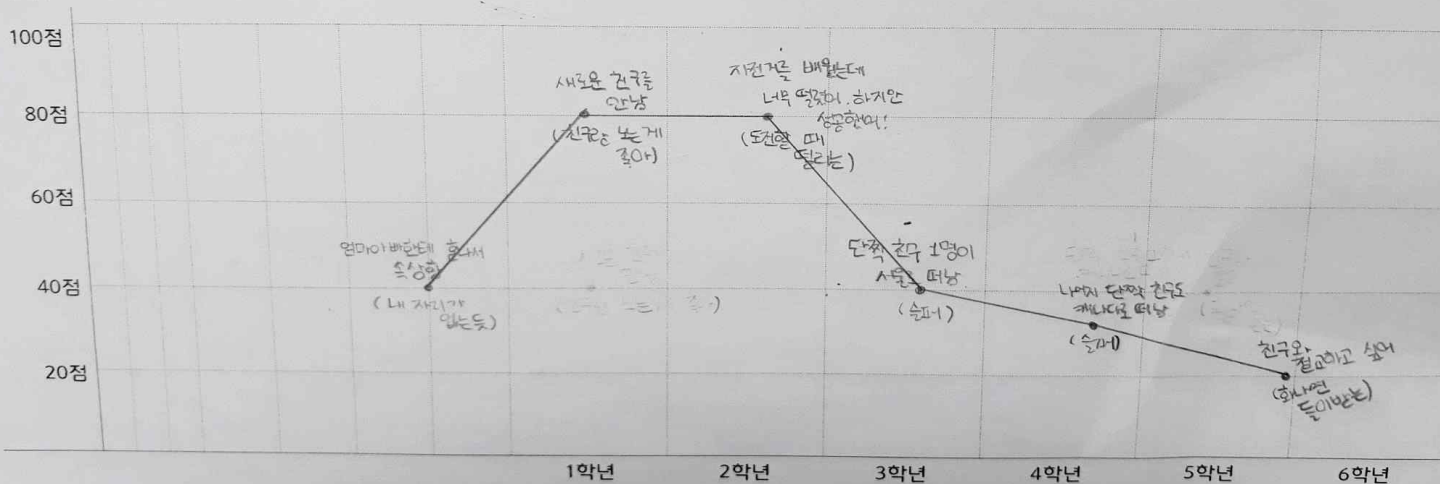 100점
80점
60점
40점
20점
엄마아빠한테 혼나서
속상함
(내 자리가
없는듯)
새로운 친구를
만남
(친구랑 노는게
좋아)
자전거를 배웠는데
너무 떨렸어. 하지만
성공했어!
(도전할 때
떨리는)
단짝 친구 1명이
서울로 떠남
(슬퍼)
나머지 단짝 친구도
캐나다로 떠남
(슬퍼)
친구와
절교하고 싶어
(화나면
들이받는)
1학년
2학년
3학년
4학년
5학년
6학년